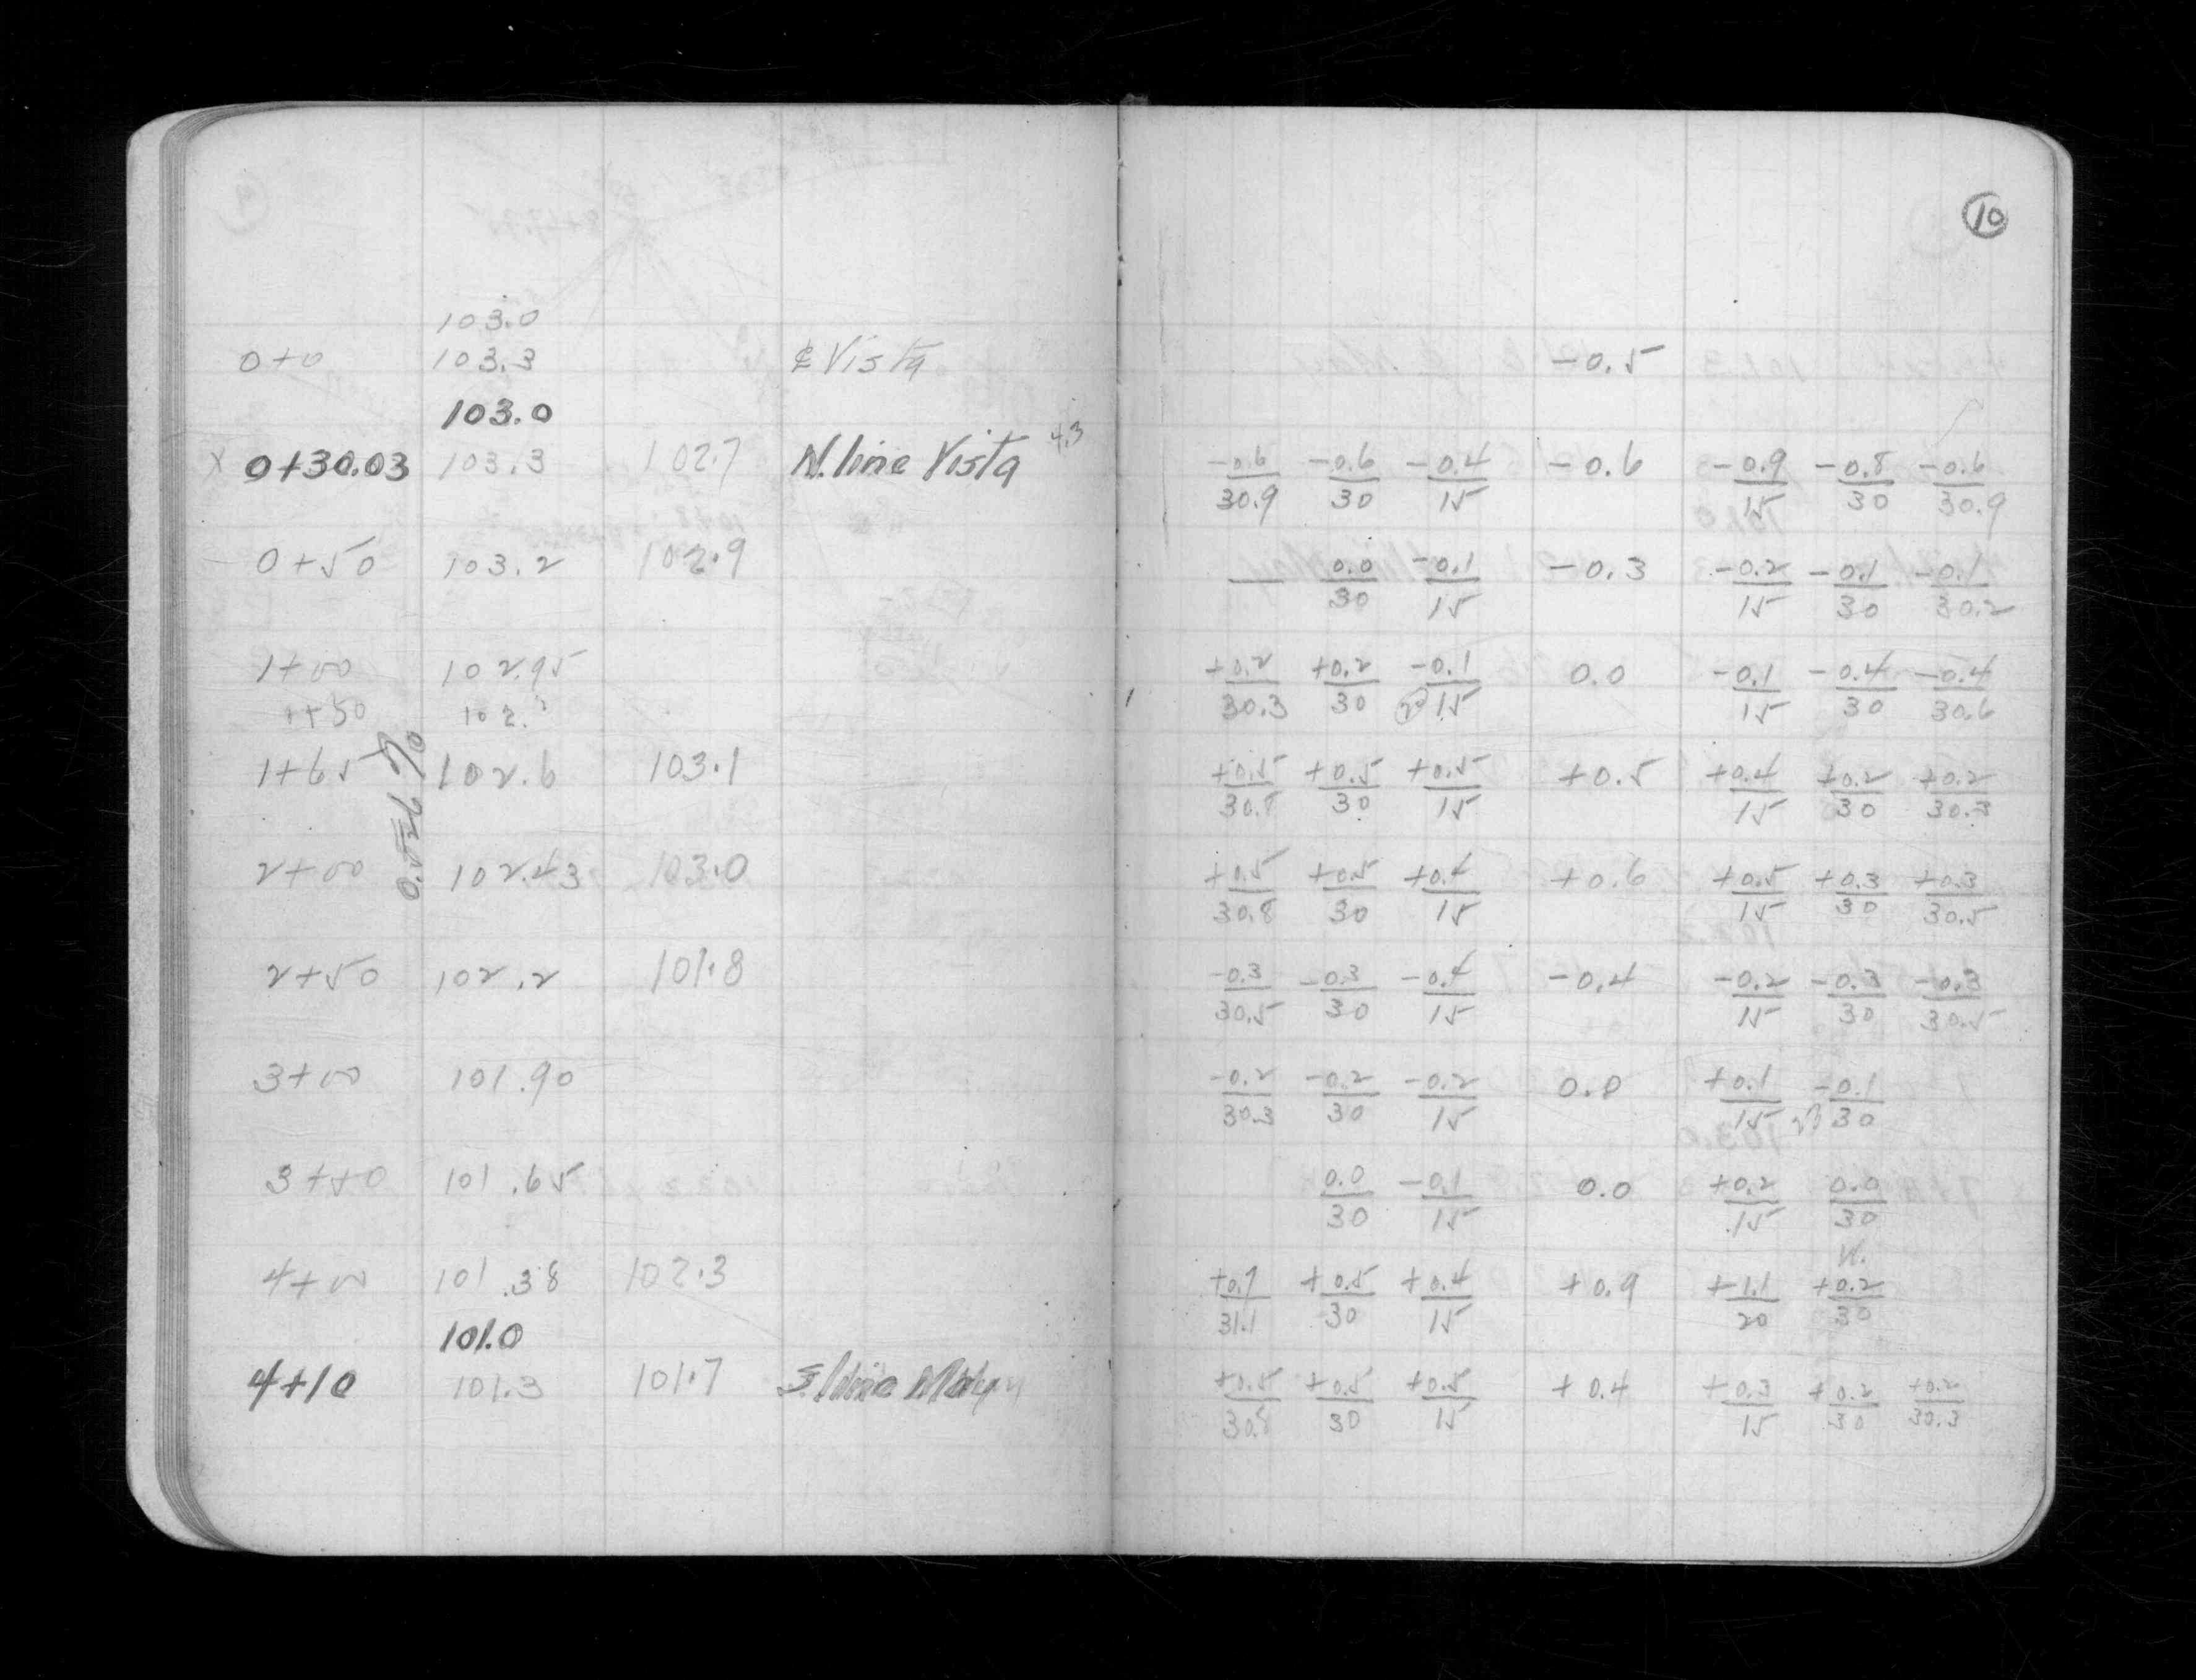 10
103.0
0+0 103.3 ₵ Vista -0.5
103.0
x 0+30.03 103.3 102.7 N. line Vista 4.3 -0.6/30.9 -0.6/30 -0.4/15 -0.6 -0.9/15 -0.8/30 -0.6/30.9
0+50 103.2 102.9 — 0.0/30 -0.1/15 -0.3 -0.2/15 -0.1/30 -0.1/30.2
1+00 102.95 +0.2/30.3 +0.2/30 -0.1/15 0.0 -0.1/15 -0.4/30 -0.4/30.6
1+50 102.
1+65 102.6 103.1 +0.5/30.8 +0.5/30 +0.5/15 +0.5 +0.4/15 +0.2/30 +0.2/30.3
0.526 %
2+00 102.43 103.0 +0.5/30.8 +0.5/30 +0.4/15 +0.6 +0.5/15 +0.3/30 +0.3/30.5
2+50 102.2 101.8 -0.3/30.5 -0.3/30 -0.4/15 -0.4 -0.2/15 -0.3/30 -0.3/30.5
3+00 101.90 -0.2/30.3 -0.2/30 -0.2/15 0.0 +0.1/15 -0.1/30
3+50 101.65 0.0/30 -0.1/15 0.0 +0.2/15 0.0/30
4+00 101.38 102.3 +0.7/31.1 +0.5/30 +0.4/15 +0.9 +1.1/20 +0.2/30
101.0
4+10 101.3 101.7 S line +0.5/30.8 +0.5/30 +0.5/15 +0.4 +0.3/15 +0.2/30 +0.2/30.3